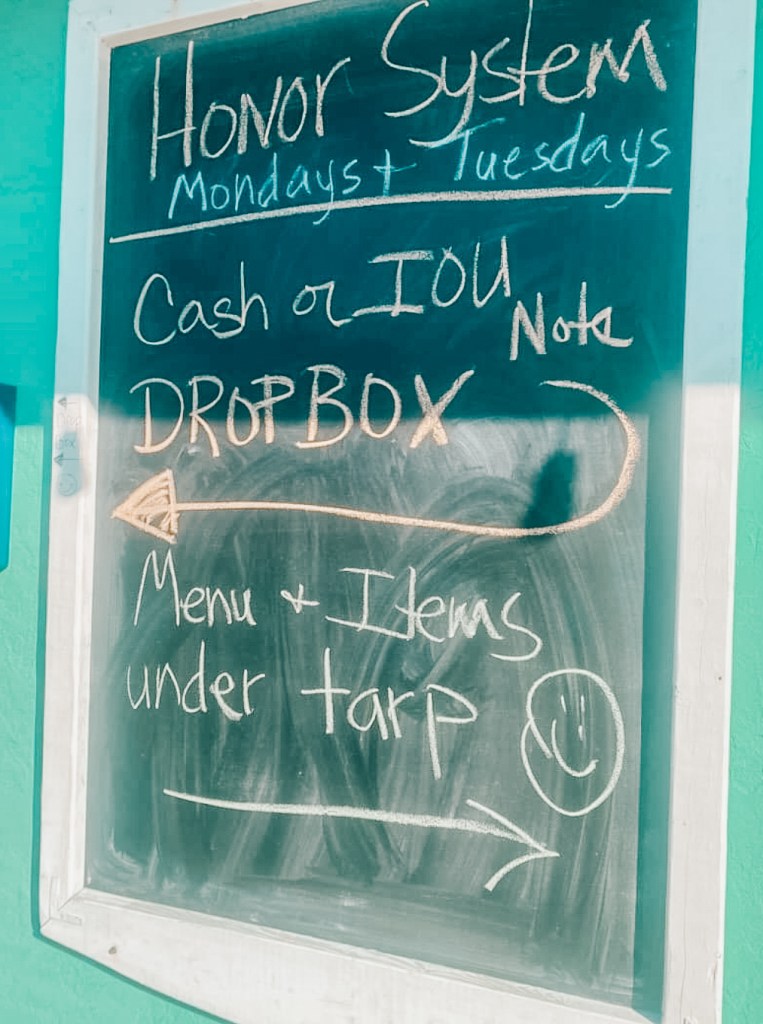 Honor System
Mondays + Tuesdays
Cash or IOU
Note
DROPBOX
Menu + Items
under tarp